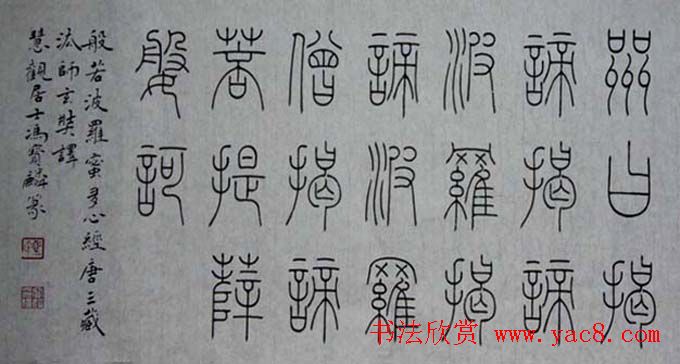 咒曰揭
諦揭諦
波羅揭
諦波羅
僧揭諦
菩提薩
婆訶
般若波羅蜜多心經唐三藏
法師玄奘譯
慧觀居士馮寶麟篆
书法欣赏 www.yac8.com